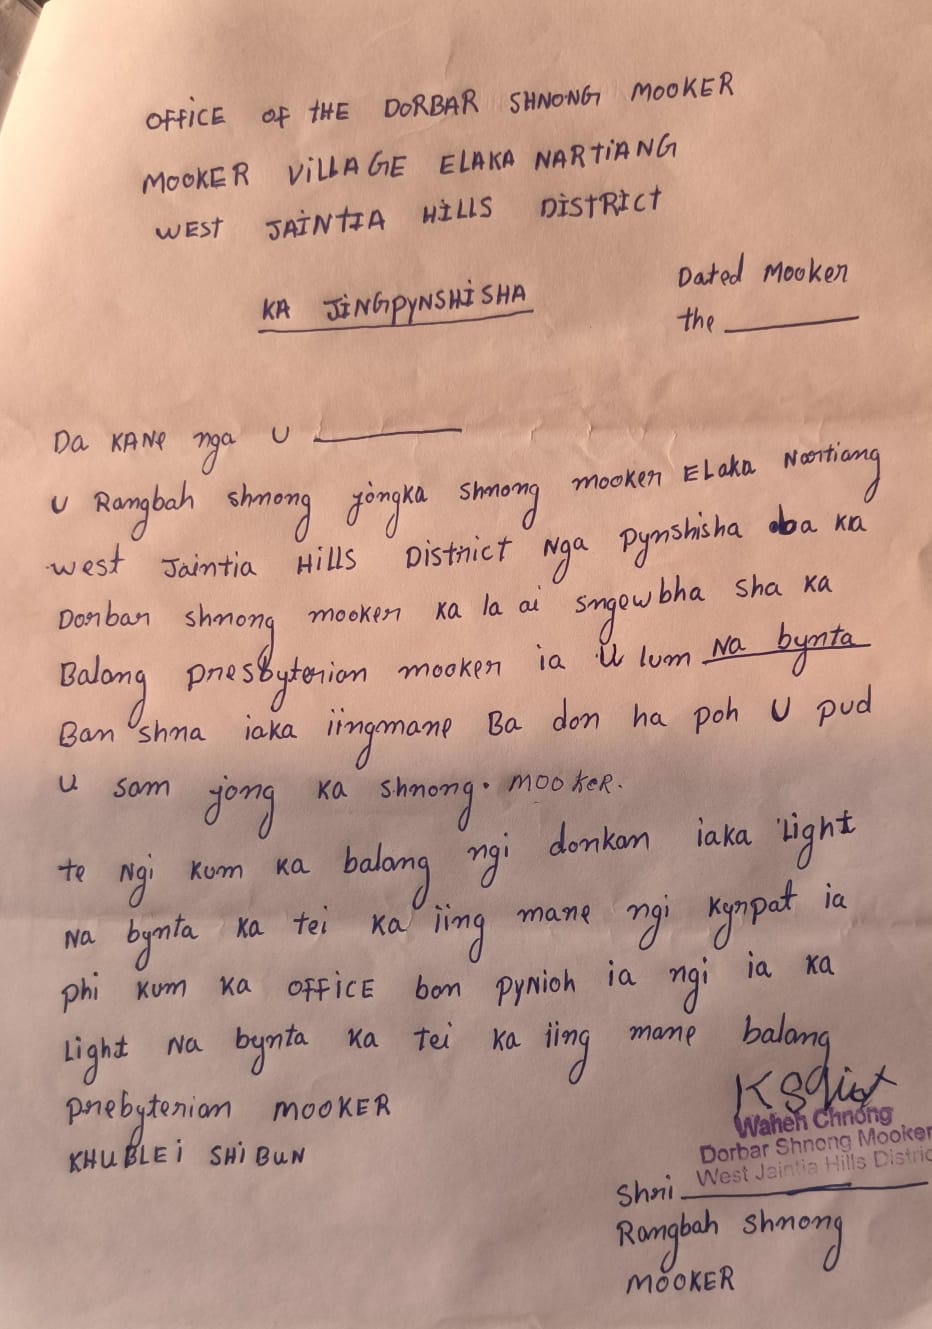 OFFICE OF THE DORBAR SHNONG MOOKER
MOOKER VILLAGE ELAKA NARTIANG
WEST JAINTIA HILLS DISTRICT
KA JINGPYNSHISHA
Dated Mooker
the
Da KANE nga U
U Rangbah shnong jongka shnong mooker ELaka Nartiang
west Jaintia Hills District Nga Pynshisha ba ka
Dorbar shnong mooker ka la ai sngewbha sha ka
Balang presbyterian mooker ia U lum Na bynta
Ban shna iaka iingmane Ba don ha poh U pud
U sam jong ka shnong. MOOKER.
te Ngi kum ka balang ngi donkam iaka Light
Na bynta ka tei ka iing mane ngi kyrpat ia
phi kum ka OFFICE ban pynioh ia ngi ia ka
Light Na bynta ka tei ka iing mane balang
prebyterian MOOKER
KHUBLEI SHIBUN
Waheh Chnong
Dorbar Shnong Mooker
West Jaintia Hills Distric
Shri
Rangbah Shnong
MOOKER